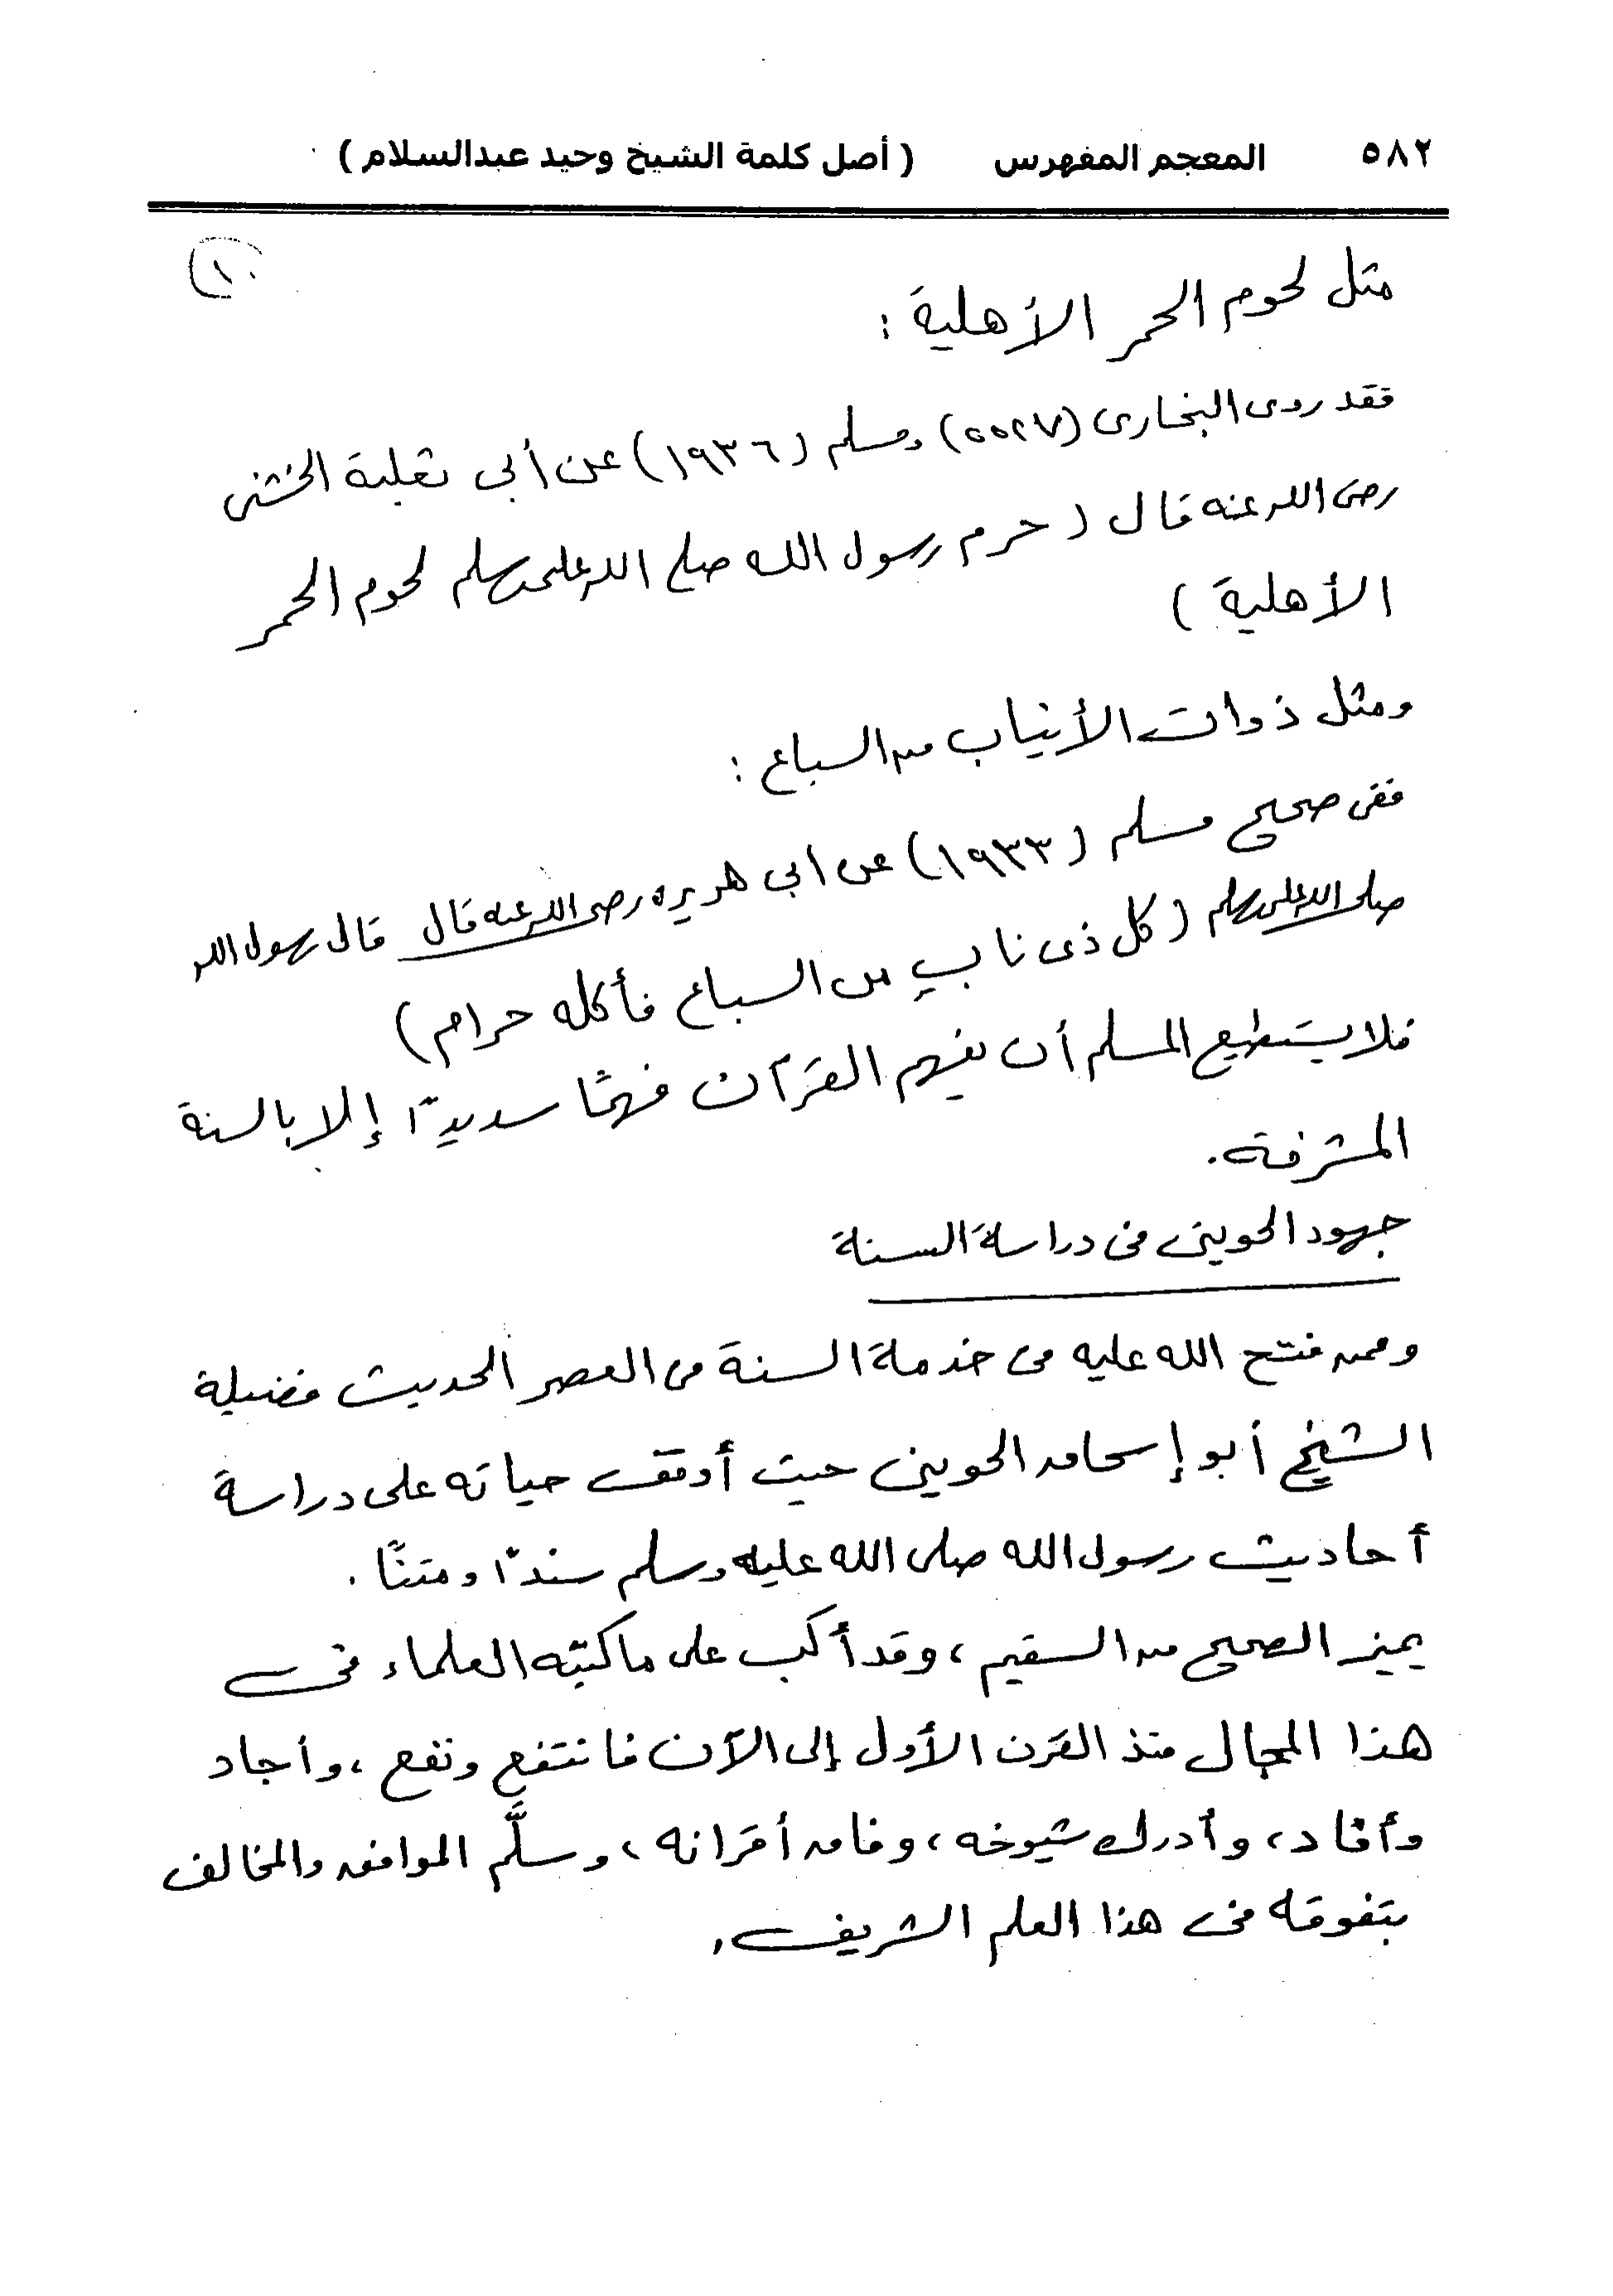 ٥٨٢ المعجم المفهرس ( أصل كلمة الشيخ وحيد عبدالسلام )
(١٠)
مثل لحوم الحمر الأهلية :
فقد روى البخارى (٥٥٢٧) ومسلم (١٩٣٦) عن أبى ثعلبة الخشنى
رضى الله عنه قال ( حرم رسول الله صلى الله عليه وسلم لحوم الحمر
الأهلية )
ومثل ذوات الأنياب من السباع :
ففى صحيح مسلم (١٩٣٣) عن أبى هريره رضى الله عنه قال قال رسول الله
صلى الله عليه وسلم ( كل ذى نابٍ من السباع فأكله حرام )
فلا يستطيع المسلم أن يفهم القرآن فهمًا سديدًا إلا بالسنة
المشرفة .
جهود الحوينى فى دراسة السنة
وممن فتح الله عليه فى خدمة السنة فى العصر الحديث فضيلة
الشيخ أبو إسحاق الحوينى حيث أوقف حياته على دراسة
أحاديث رسول الله صلى الله عليه وسلم سندًا ومتنًا .
يميز الصحيح من السقيم ، وقد أكب على ما كتبه العلماء فى
هذا المجال منذ القرن الأول إلى الآن فانتفع ونفع ، وأجاد
وأفاد ، وأدرك شيوخه ، وفاق أقرانه ، وسلَّم الموافق والمخالف
بتفوقه فى هذا العلم الشريف .